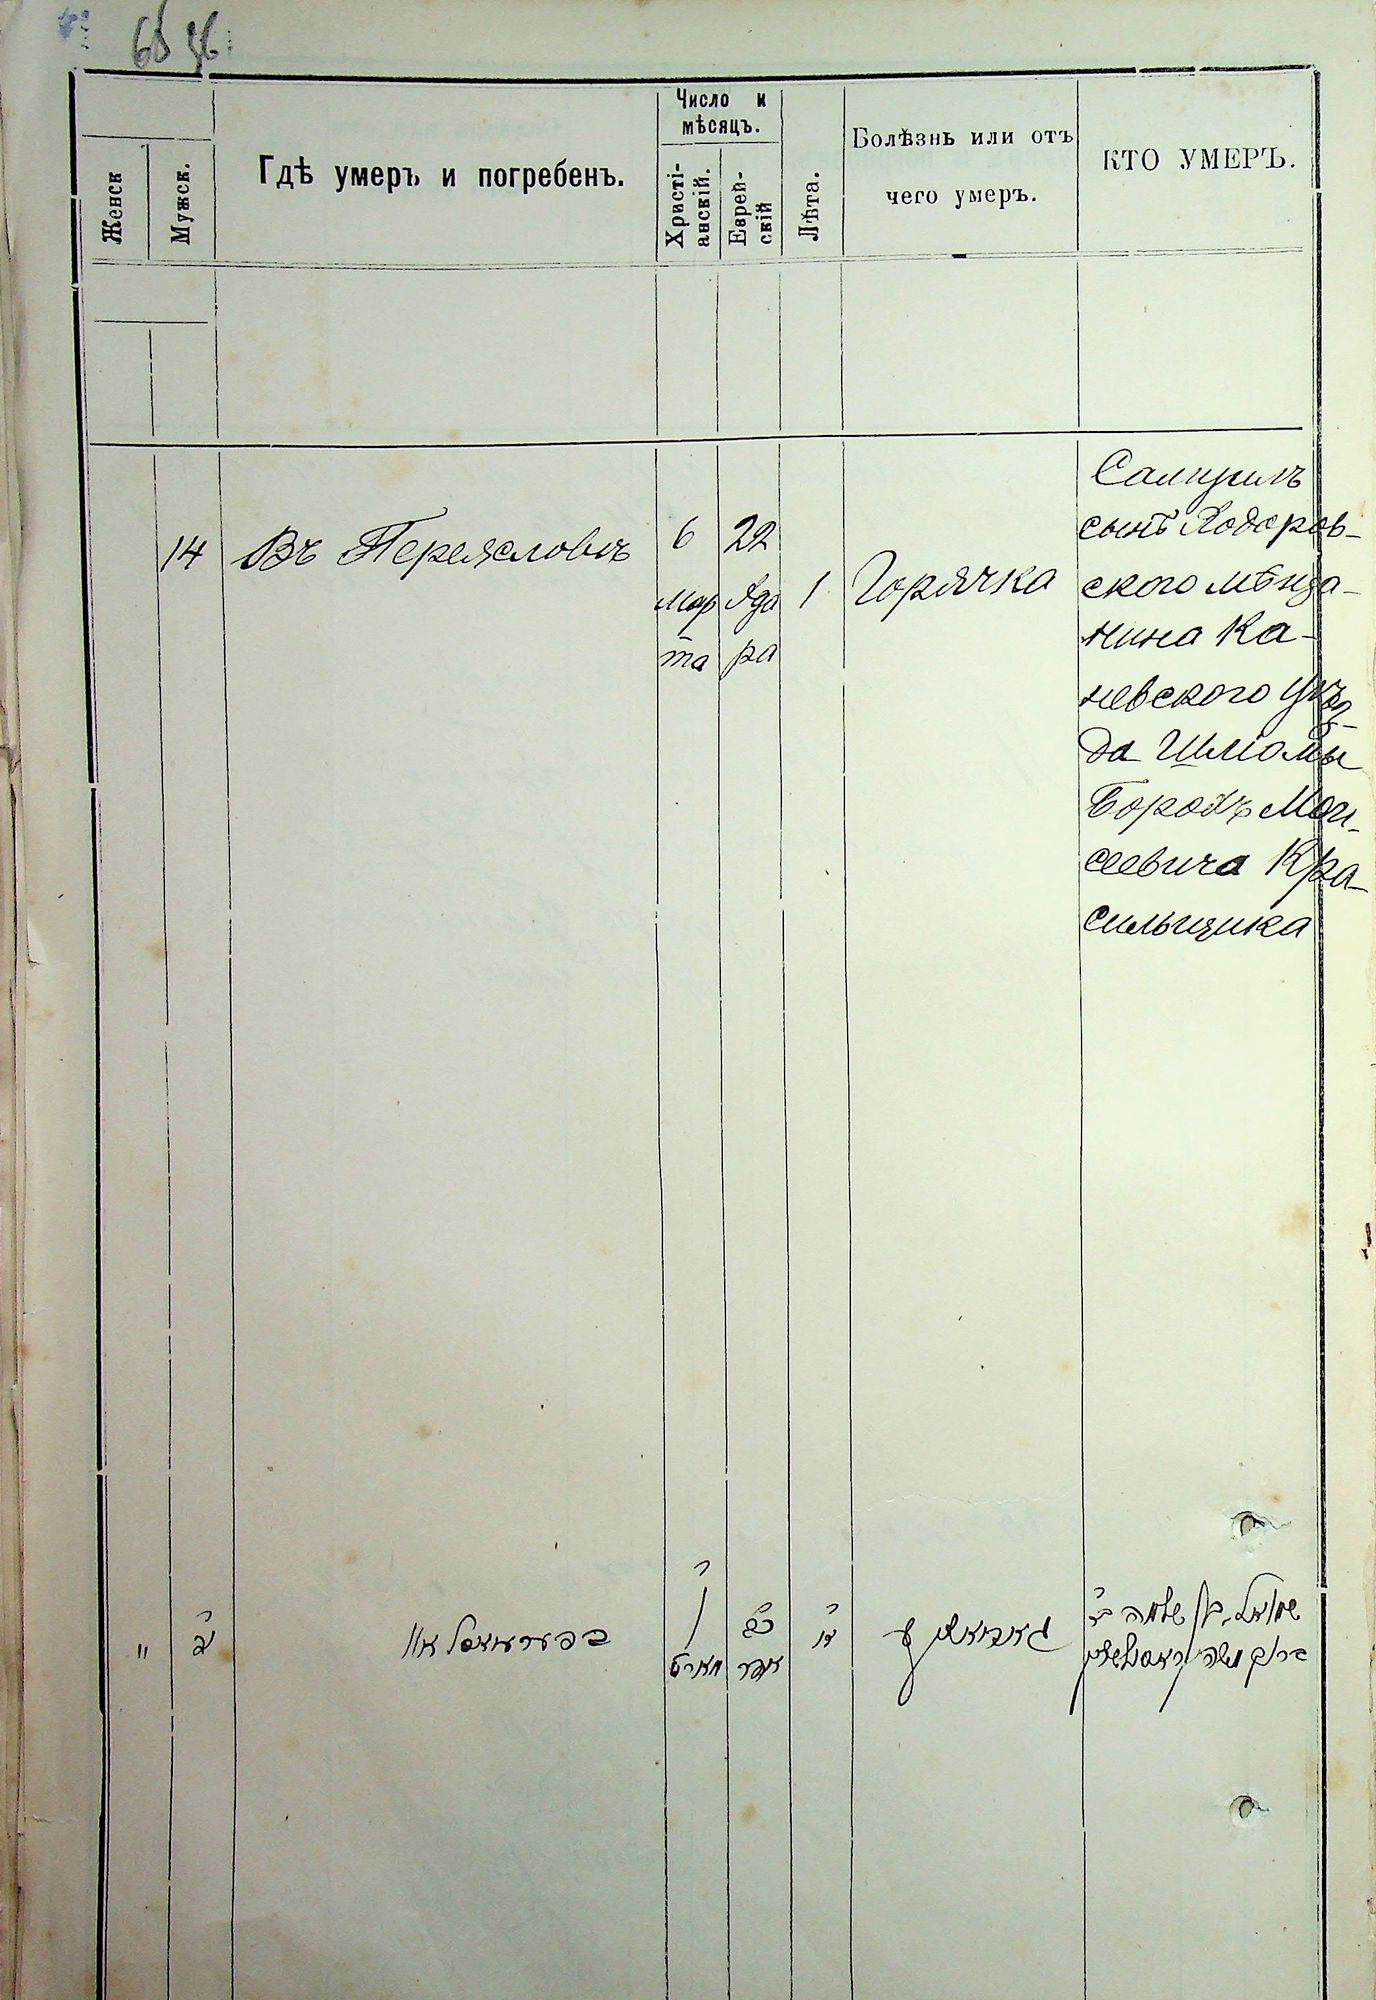 Женск
Мужск.
Гдѣ умеръ и погребенъ.
Число и
мѣсяцъ.
Христі-
анскій.
Еврей-
скій
Лѣта.
Болѣзнь или отъ
чего умеръ.
КТО УМЕРЪ.
14
Въ Переяславѣ
6
Мар
та
22
Ада
ра
1
Горячка
Самуилъ
сынъ Ходоров-
ского мѣща-
нина Ка-
невского уѣз-
да Шліомы
Борохъ Мои-
сеевича Кра-
сильщика
"
מארט
אדר
שמואל בן שלמה
ברוך משה